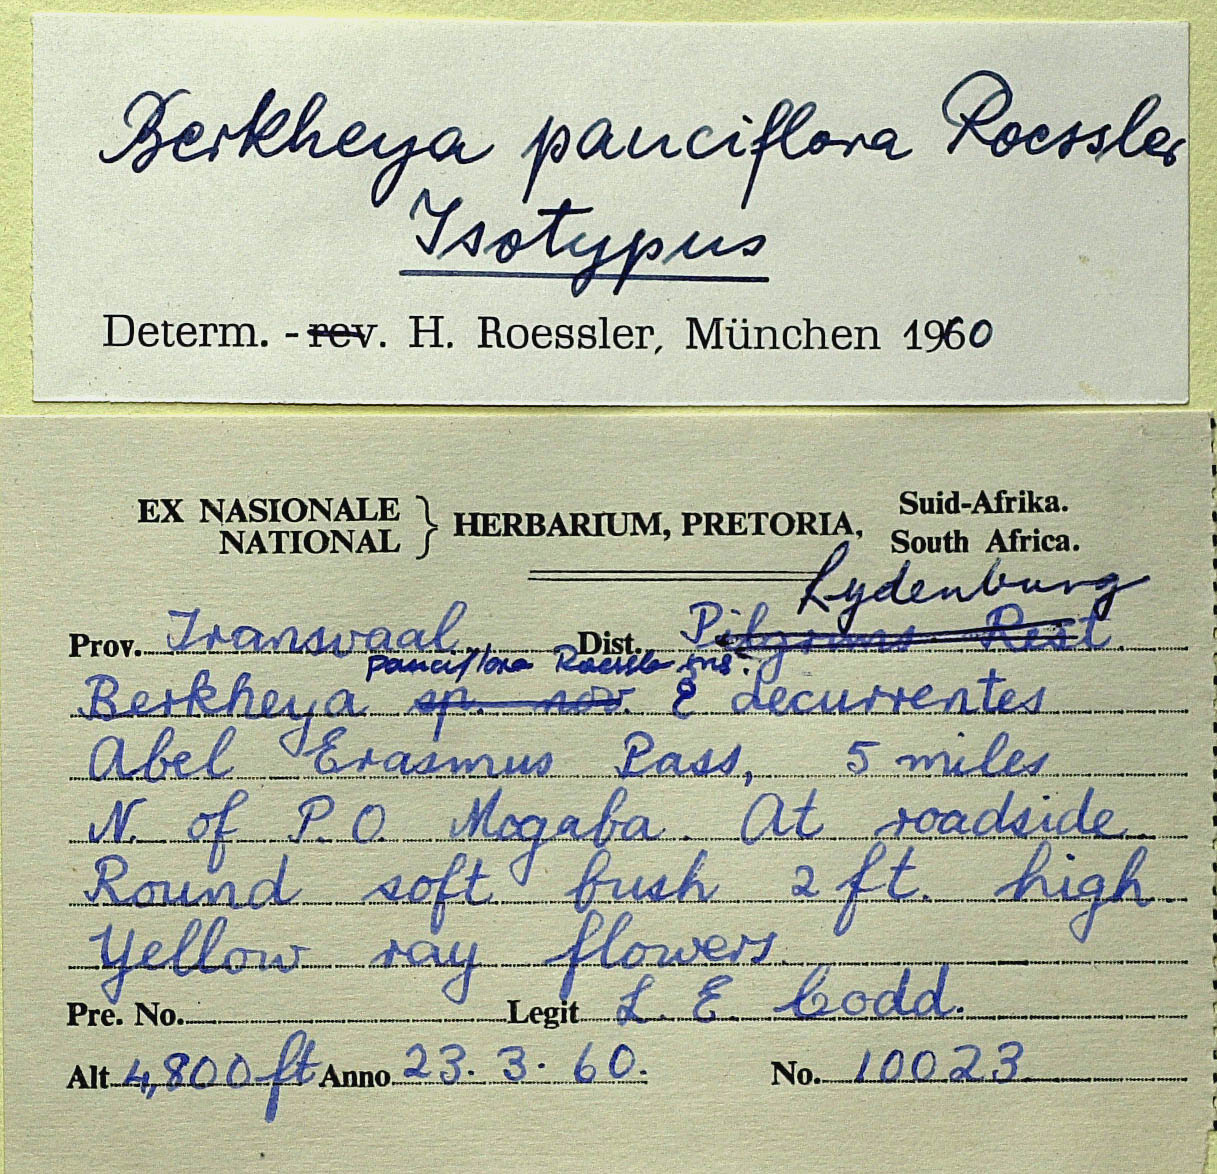 Berkheya pauciflora Roessler
Isotypus
Determ. - rev. H. Roessler, München 1960
EX NASIONALE
NATIONAL } HERBARIUM, PRETORIA,
Suid-Afrika.
South Africa.
Lydenburg
Prov. Transvaal Dist. Pilgrims Rest
pauciflora Roessler ms.
Berkheya sp. nov. § decurrentes
Abel Erasmus Pass, 5 miles
N. of P.O. Mogaba. At roadside.
Round soft bush 2 ft. high.
Yellow ray flowers.
Pre. No. Legit L. E. Codd.
Alt 4,800 ft Anno 23. 3. 60. No. 10023